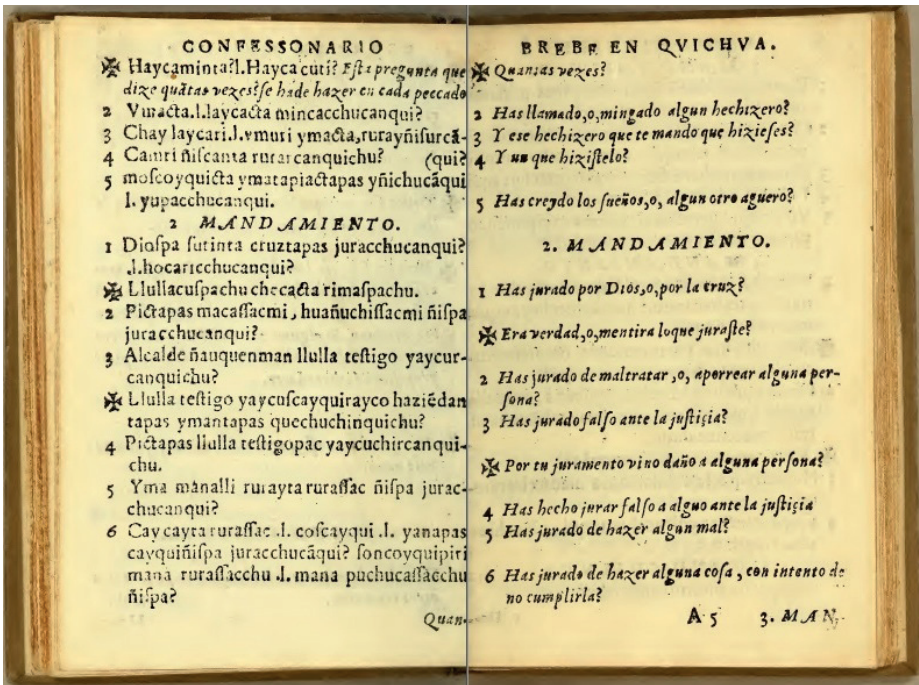 CONFESSONARIO
✠ Haycaminta?l.Hayca cuti? Eſta pregunta que
dize quãtas vezes?ſe hade hazer en cada peccado
2 Vmacta.l.laycacta mincacchucanqui?
3 Chay laycari.l.vmuri ymacta,rurayñiſurcã-
4 Camri ñiſcanta rurarcanquichu? (qui?
5 moſcoyquicta ymatapiactapas yñichucãqui
l. yupacchucanqui.
2 MANDAMIENTO.
1 Dioſpa ſutinta cruztapas juracchucanqui?
.l.hocaricchucanqui?
✠ Llullacuſpachu checacta rimaſpachu.
2 Pictapas macaſſacmi, huañuchiſſacmi ñiſpa
juracchucanqui?
3 Alcalde ñauquenman llulla teſtigo yaycur-
canquichu?
✠ Llulla teſtigo yaycuſcayquirayco haziēdan
tapas ymantapas quechuchinquichu?
4 Pictapas llulla teſtigopac yaycuchircanqui-
chu.
5 Yma mánalli rurayta ruraſſac ñiſpa jurac-
chucanqui?
6 Cay cayta ruraſſac .l. coſcayqui .l. yanapas
cayquiñiſpa juracchucãqui? ſoncoyquipiri
mana ruraſſacchu .l. mana puchucaſſacchu
ñiſpa?
Quan-
BREBE EN QVICHVA.
✠ Quantas vezes?
2 Has llamado,o,mingado algun hechizero?
3 Y eſe hechizero que te mando que hizieſes?
4 Y que hiziſtelo?
5 Has creydo los ſueños,o, algun otro aguero?
2. MANDAMIENTO.
1 Has jurado por Dios,o,por la cruz?
✠ Era verdad,o,mentira loque juraſte?
2 Has jurado de maltratar ,o, aperrear alguna per-
ſona?
3 Has jurado falſo ante la juſtiçia?
✠ Por tu juramento vino daño a alguna perſona?
4 Has hecho jurar falſo a alguo ante la juſtiçia
5 Has jurado de hazer algun mal?
6 Has jurado de hazer alguna coſa , con intento de
no cumplirla?
A 5 3. MAN-